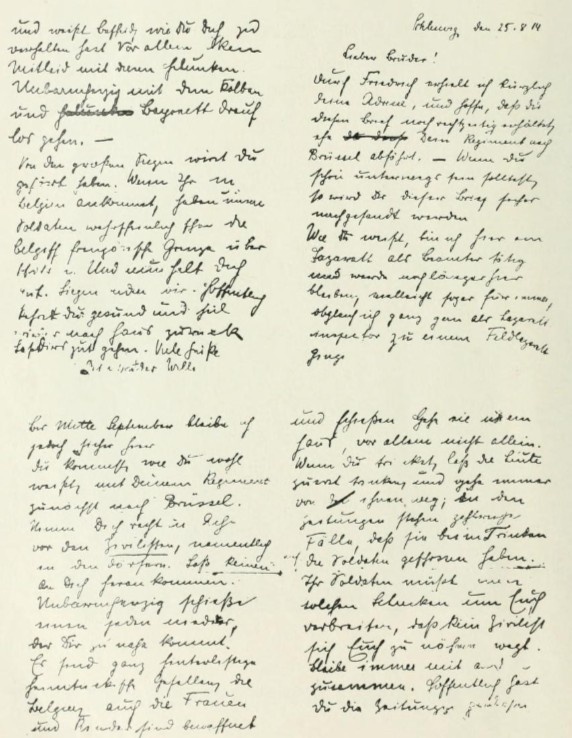 den 25.8.14
Lieber Bruder!
Durch Friedrich erhielt ich kürzlich
deine Adresse, und hoffe, daß du
diesen Brief noch rechtzeitig erhältst,
ehe Dein Regiment nach
Brüssel abfährt. — Wenn du
schon unterwegs sein solltest,
so wird dir dieser Brief sicher
nachgesandt werden
Wie du weißt, bin ich hier am
Lazarett als Beamter tätig
und werde noch länger hier
bleiben, vielleicht sogar für immer,
obgleich ich ganz gern als Lazarett
inspektor zu einem Feldlazarett
ginge
Bis Mitte September bleibe ich
jedoch sicher hier
Du kommst, wie Du wohl
weißt, mit Deinem Regiment
zunächst nach Brüssel.
Nimm Dich recht in Acht
vor den Zivilisten, namentlich
in den Dörfern. Laß keinen
an Dich heran kommen.
Unbarmherzig schieße
einen jeden nieder,
der Dir zu nahe kommt.
Es sind ganz hinterlistige
Gesellen, die
Belgier, auch die Frauen
und Kinder sind bewaffnet
und schießen. Gehe nie in ein
Haus, vor allem nicht allein.
Wenn Du trinkst, laß die Leute
zuerst trinken, und gehe immer
von ihnen weg; in den
Zeitungen stehen zahlreiche
Fälle, daß sie beim Trinken
auf die Soldaten geschossen haben.
Ihr Soldaten müßt einen
solchen Schrecken um Euch
verbreiten, daß kein Zivilist
sich Euch zu nähern wagt.
Bleibe immer mit
zusammen. Hoffentlich hast
Du die Zeitungen gelesen
und weißt Bescheid, wie Du Dich zu
verhalten hast. Vor allem kein
Mitleid mit diesen Halunken.
Unbarmherzig mit dem Kolben
und Bayonett drauf
los gehen. —
Von den großen Siegen wirst Du
gehört haben. Wenn Ihr in
Belgien ankommt, haben unsere
Soldaten wahrscheinlich schon die
belgisch französische Grenze über
schritten. Und nun halt Dich
gut. Siegen werden wir. Hoffentlich
kehrst Du gesund und heil
wieder nach Haus zurück
Laß Dirs gut gehen. Viele Grüße
Dein Bruder Willi